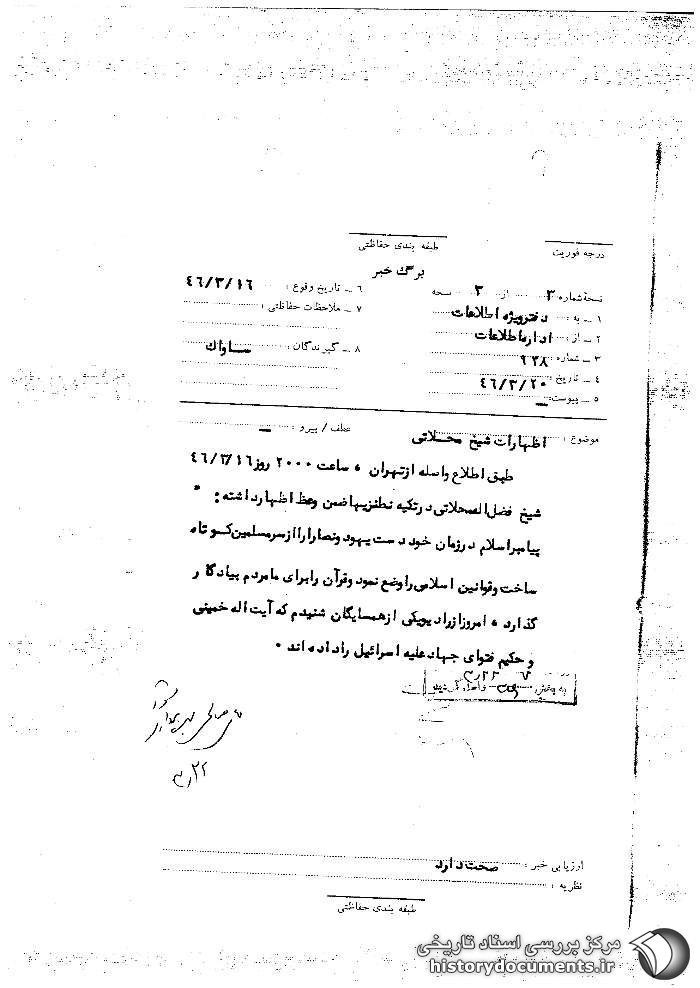 درجه فوریت
طبقه بندی حفاظتی
برگ خبر
نسخهٔ شماره ۳ از ۳ نسخه
۱ ـ به : دفتر ویژه اطلاعات
۲ ـ از : اداره اطلاعات
۳ ـ شماره : ۹۲۸
۴ ـ تاریخ : ۴۶/۳/۲۰
۵ ـ پیوست : ـ
۶ ـ تاریخ وقوع : ۴۶/۳/۱۶
۷ ـ ملاحظات حفاظتی :
۸ ـ گیرندگان : ساواک
موضوع : اظهارات شیخ محلاتی
عطف / پیرو : ـ
طبق اطلاع واصله از تهران ، ساعت ۲۰۰۰ روز ۴۶/۳/۱۶
شیخ فضل اله محلاتی در تکیه نطنزیها ضمن وعظ اظهار داشته : "
پیامبر اسلام در زمان خود دست یهود و نصارا را از سر مسلمین کوتاه
ساخت و قوانین اسلامی را وضع نمود و قرآن را برای ما مردم بیادگار
گذارد ، امروز از رادیو یکی از همسایگان شنیدم که آیت اله خمینی
و حکیم فتوای جهاد علیه اسرائیل را داده اند .
به بخش
۳/۲۲
ارزیابی خبر : صحت دارد
نظریه :
طبقه بندی حفاظتی
مرکز بررسی اسناد تاریخی
historydocuments.ir